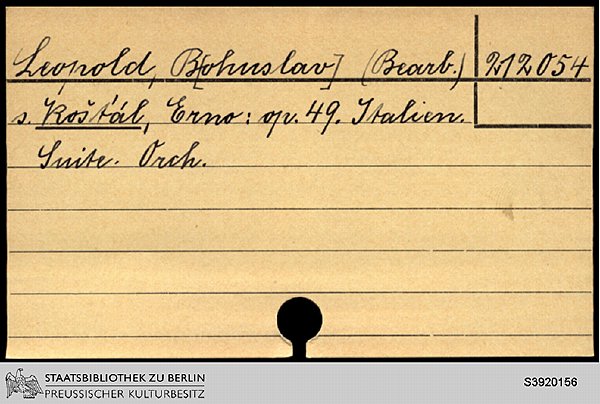 Leopold, B[ohuslav] (Bearb.) 212054
s. Košťál, Erno: op. 49. Italien.
Suite. Orch.
STAATSBIBLIOTHEK ZU BERLIN
PREUSSISCHER KULTURBESITZ
S3920156